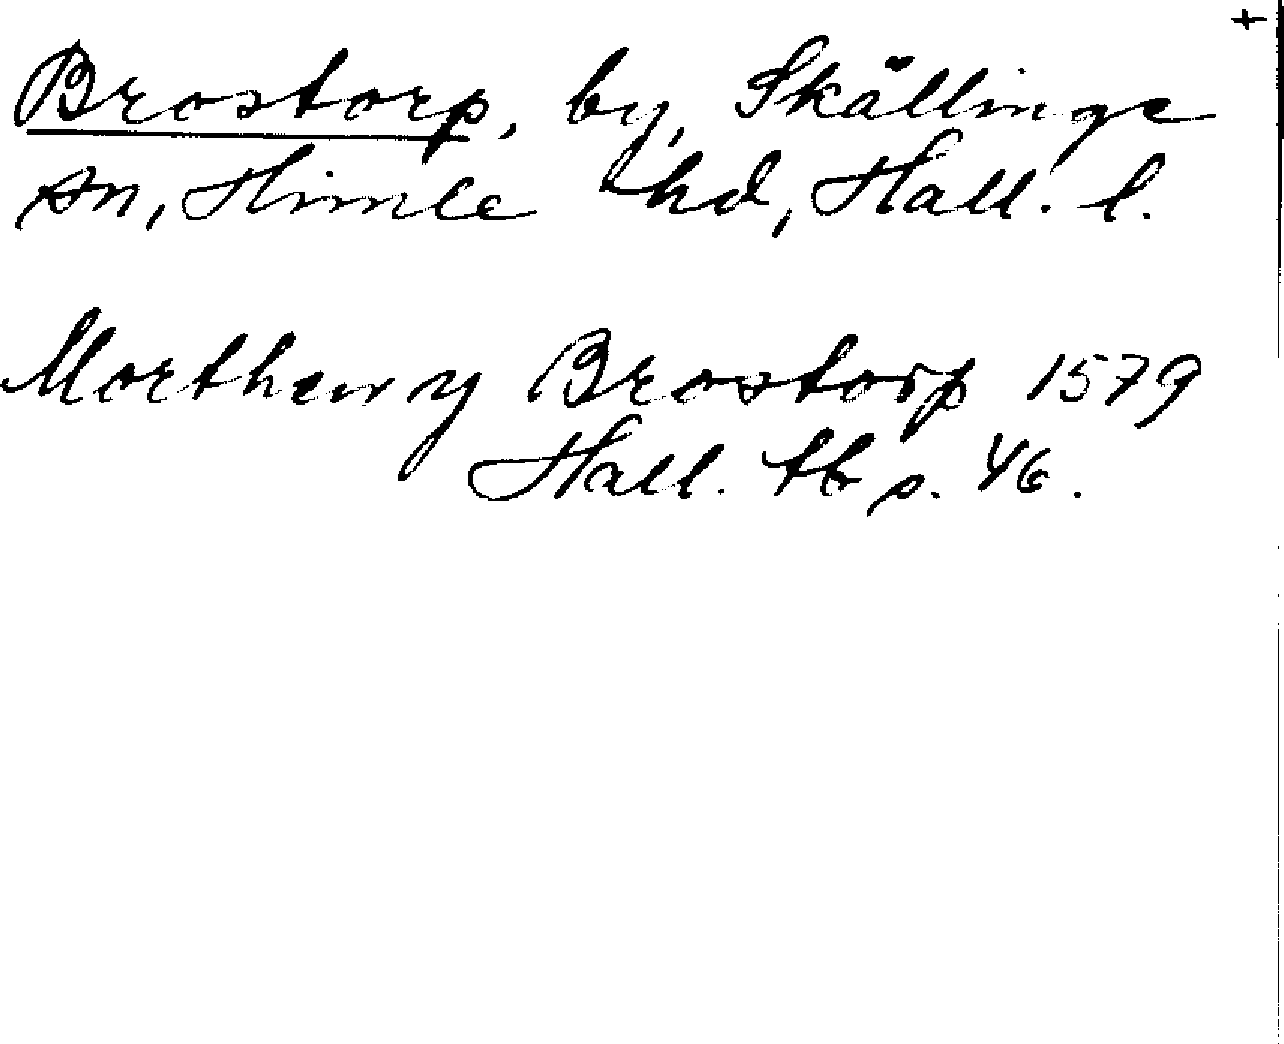 +
Brostorp, by, Skällinge
sn, Himle hd, Hall. l.
Morthen y Brostorp 1579
Hall. tb s. 46.